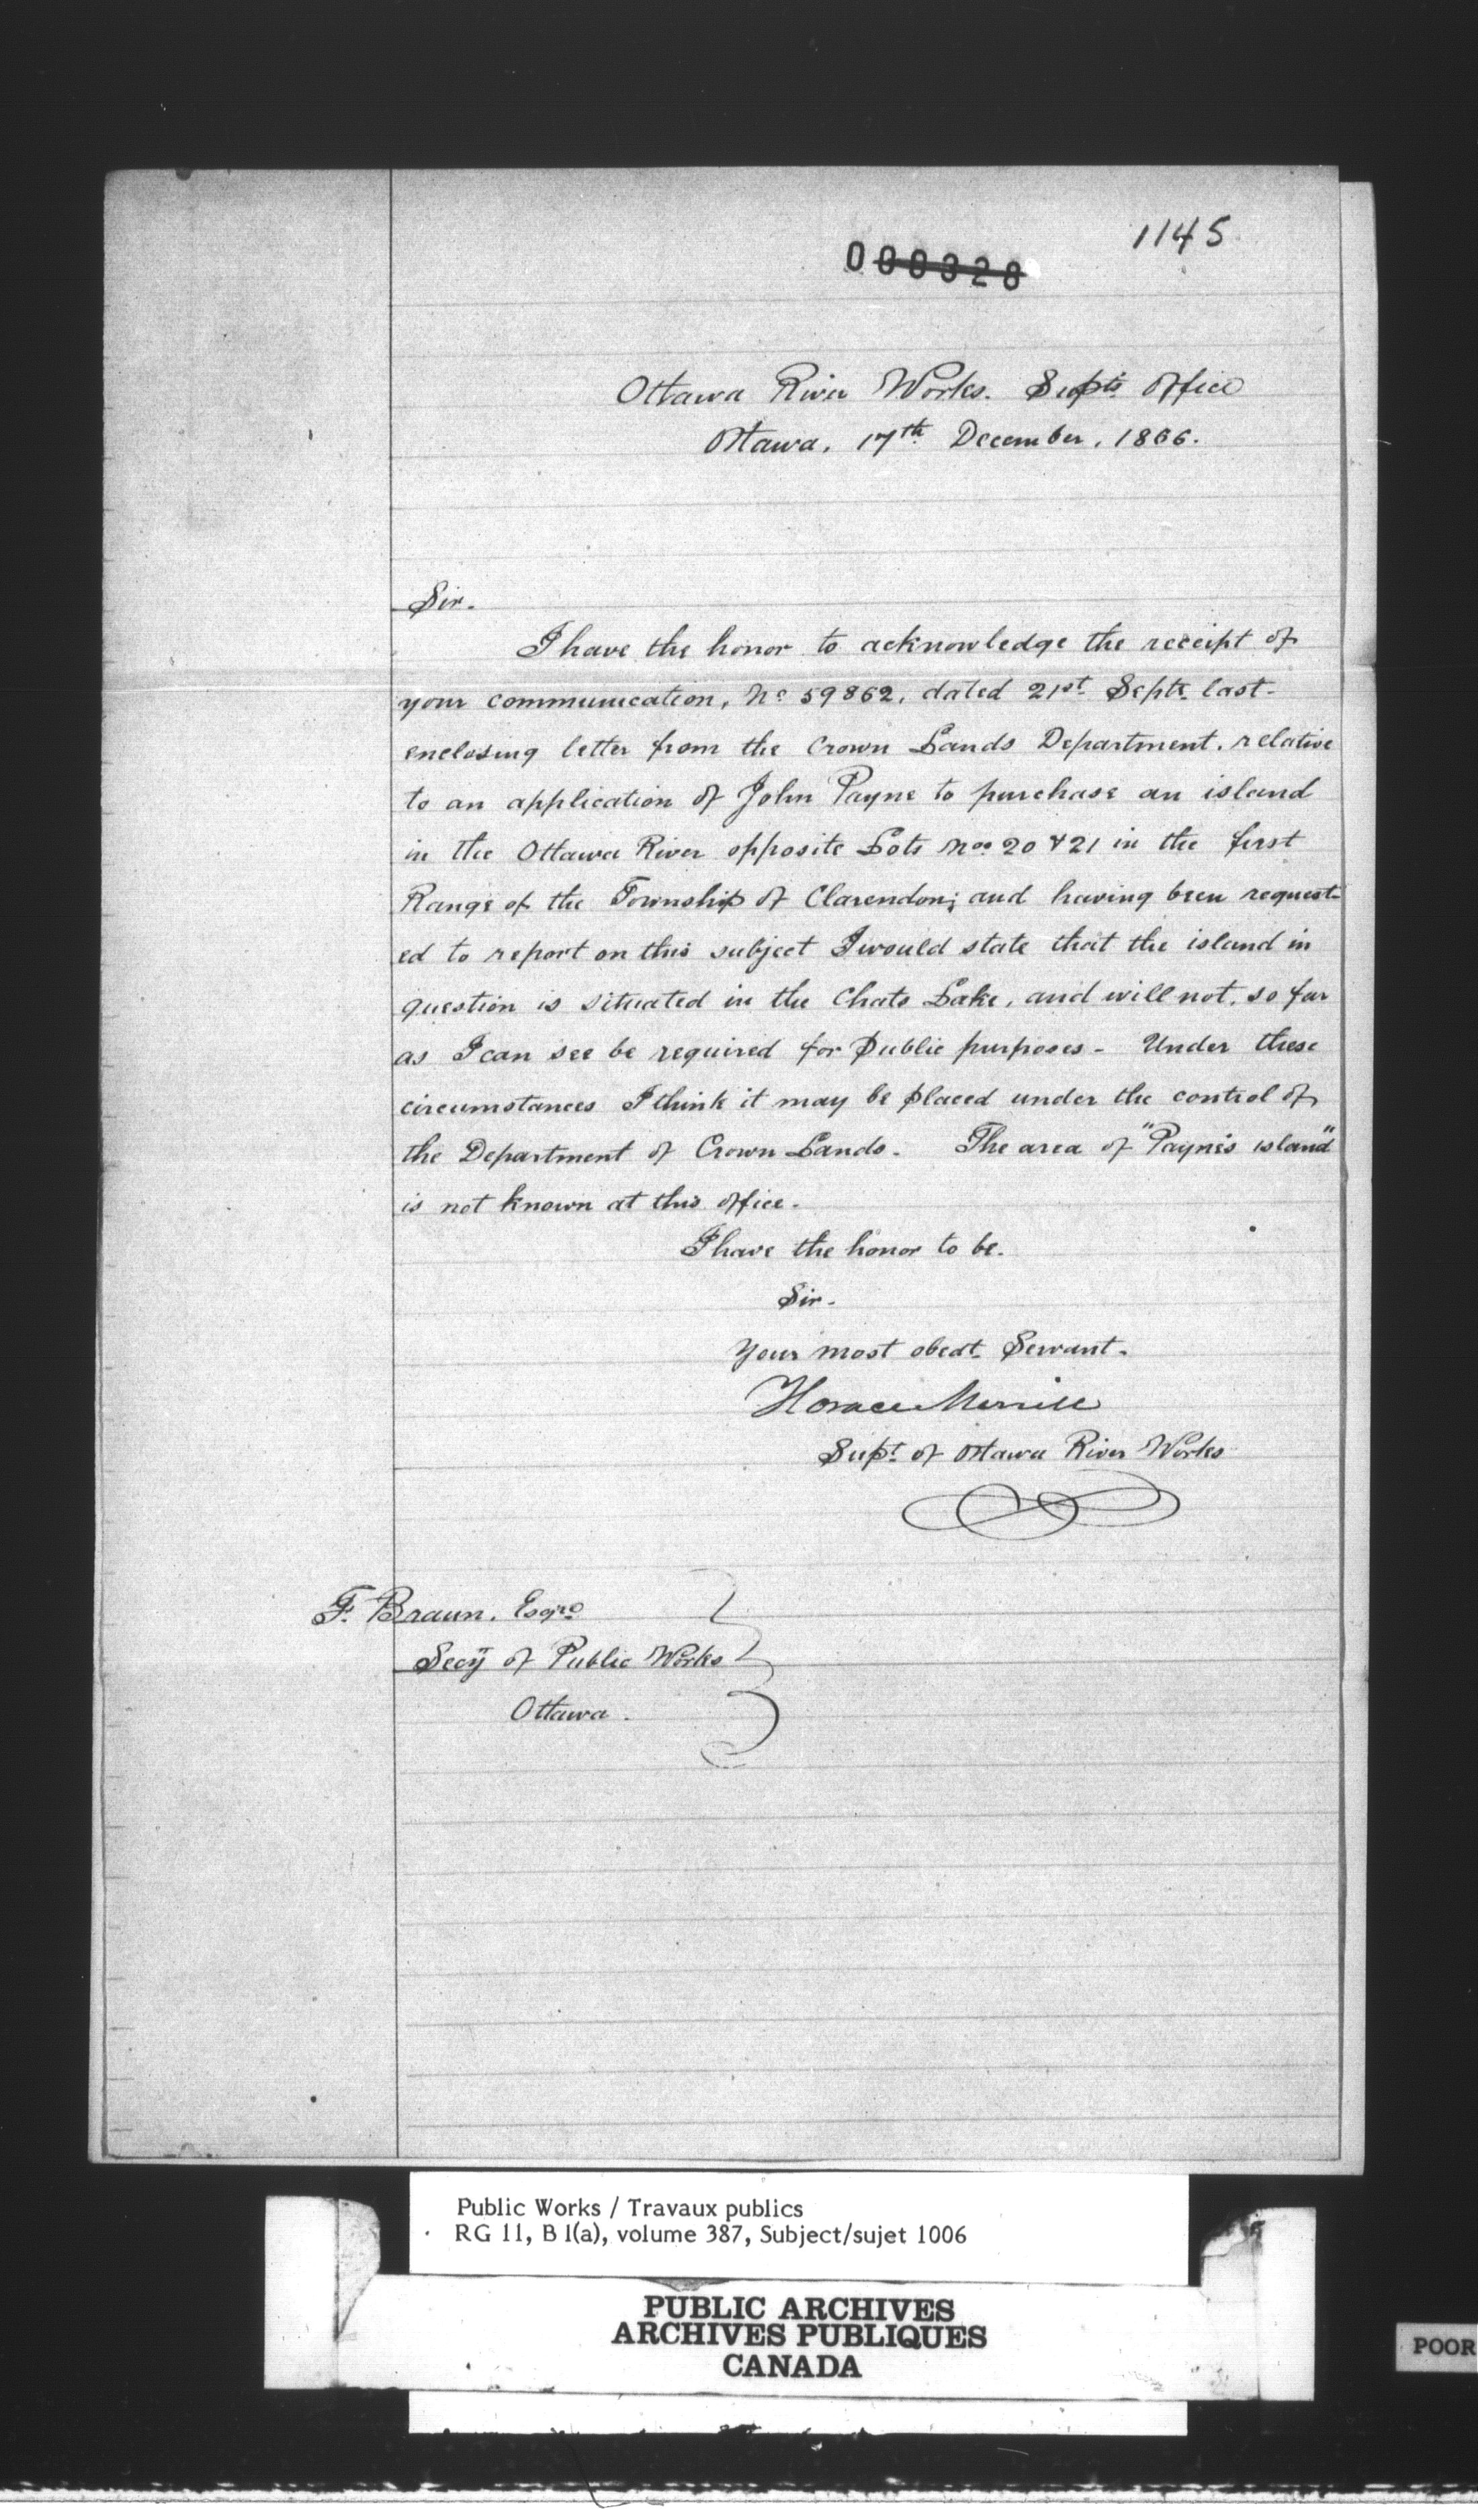 1145
000328
Ottawa River Works. Supts Office
Ottawa, 17th December, 1866.
Sir.
I have the honor to acknowledge the receipt of
your communication, No 59862, dated 21st Septr last-
enclosing letter from the Crown Lands Department, relative
to an application of John Payne to purchase an island
in the Ottawa River opposite Lots Nos 20 & 21 in the first
Range of the Township of Clarendon; and having been request-
ed to report on this subject I would state that the island in
question is situated in the Chats Lake, and will not, so far
as I can see be required for Public purposes - Under these
circumstances I think it may be placed under the control of
the Department of Crown Lands. The area of "Payne's island"
is not known at this office.
I have the honor to be.
Sir.
Your most obedt Servant.
Horace Merrill
Supt of Ottawa River Works
F. Braun, Esqre
Secy of Public Works
Ottawa.
Public Works / Travaux publics
RG 11, B 1(a), volume 387, Subject/sujet 1006
PUBLIC ARCHIVES
ARCHIVES PUBLIQUES
CANADA
POOR